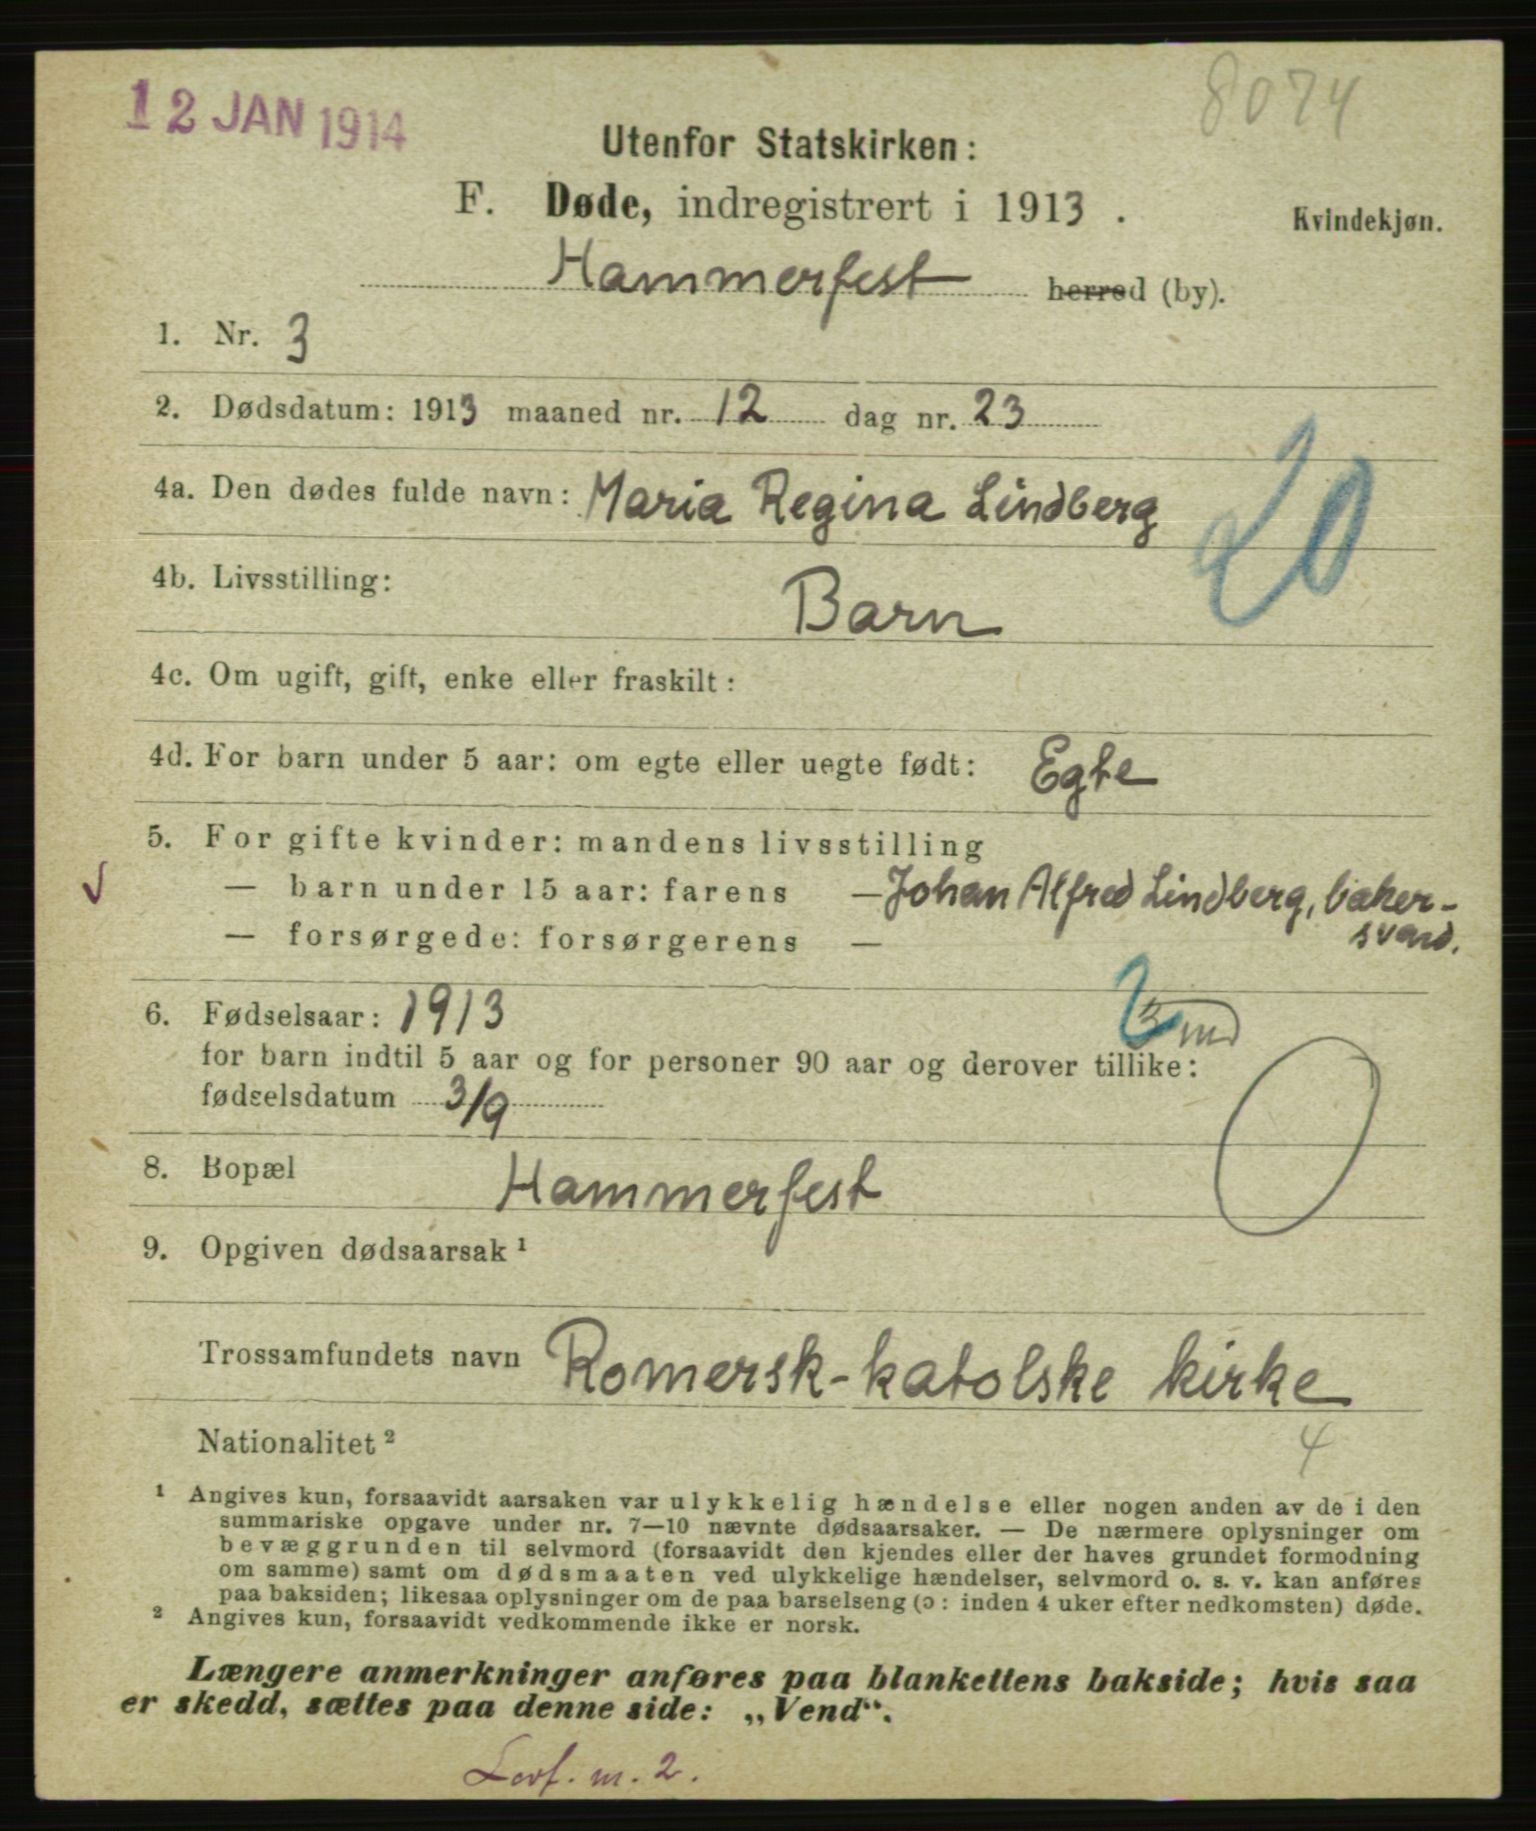 12 JAN 1914
8074
Utenfor Statskirken:
F. Døde, indregistrert i 1913 .
Kvindekjøn.
Hammerfest herred (by).
1. Nr. 3
2. Dødsdatum: 1913 maaned nr. 12 dag nr. 23
4a. Den dødes fulde navn: Maria Regina Lindberg
20
4b. Livsstilling: Barn
4c. Om ugift, gift, enke eller fraskilt:
4d. For barn under 5 aar: om egte eller uegte født: Egte
5. For gifte kvinder: mandens livsstilling
— barn under 15 aar: farens — Johan Alfred Lindberg, baker-
svend.
— forsørgede: forsørgerens —
6. Fødselsaar: 1913
3 md
for barn indtil 5 aar og for personer 90 aar og derover tillike:
fødselsdatum 3/9
0
8. Bopæl Hammerfest
9. Opgiven dødsaarsak ¹
Trossamfundets navn Romersk-katolske kirke
4
Nationalitet ²
¹ Angives kun, forsaavidt aarsaken var ulykkelig hændelse eller nogen anden av de i den
summariske opgave under nr. 7—10 nævnte dødsaarsaker. — De nærmere oplysninger om
bevæggrunden til selvmord (forsaavidt den kjendes eller der haves grundet formodning
om samme) samt om dødsmaaten ved ulykkelige hændelser, selvmord o. s. v. kan anføres
paa baksiden; likesaa oplysninger om de paa barselseng (ɔ: inden 4 uker efter nedkomsten) døde.
² Angives kun, forsaavidt vedkommende ikke er norsk.
Længere anmerkninger anføres paa blankettens bakside; hvis saa
er skedd, sættes paa denne side: „Vend“.
m. 2.